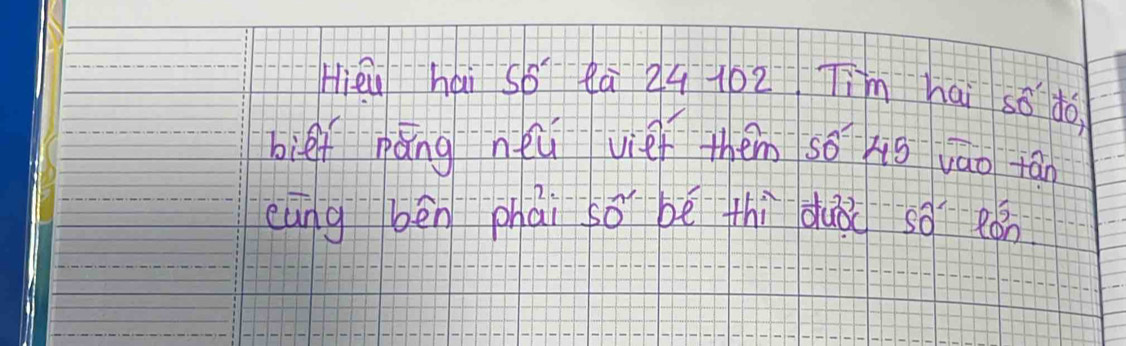 Hiệu hai số là 24 102. Tìm hai số đó,
biết rằng nếu viết thêm số 45 vào tận
cùng bên phải số bé thì được số lớn